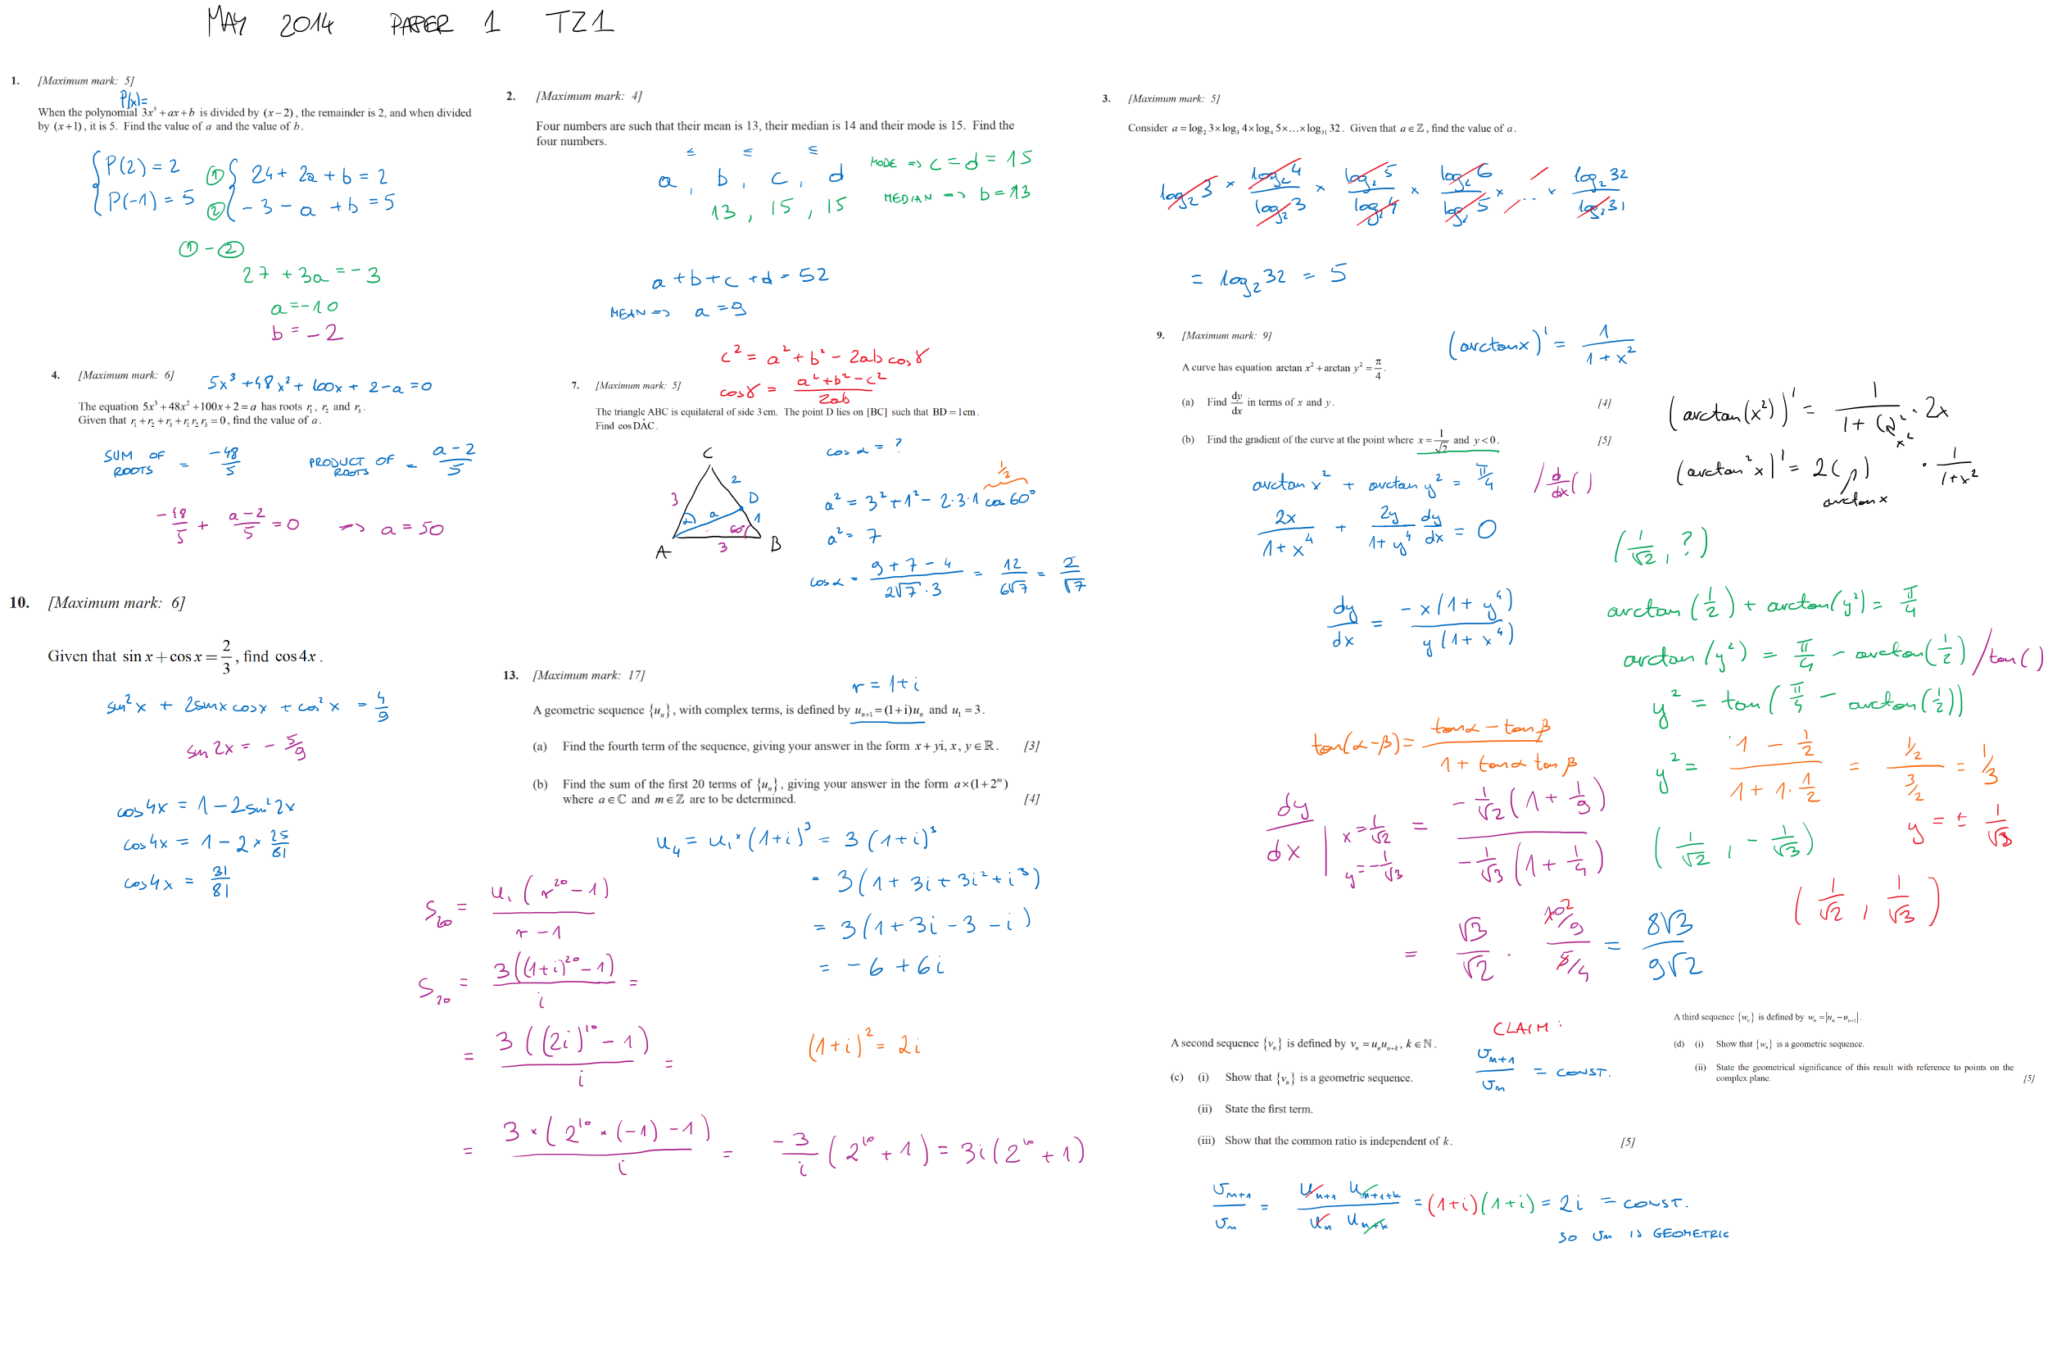 MAY 2014 PAPER 1 TZ1
1. [Maximum mark: 5]
P(x)=
When the polynomial 3x³ + ax + b is divided by (x − 2), the remainder is 2, and when divided
by (x + 1), it is 5. Find the value of a and the value of b.
{ P(2) = 2 ① { 24 + 2a + b = 2
{ P(-1) = 5 ② { - 3 - a + b = 5
① - ②
27 + 3a = - 3
a = - 10
b = - 2
2. [Maximum mark: 4]
Four numbers are such that their mean is 13, their median is 14 and their mode is 15. Find the
four numbers.
≤ ≤ ≤
a , b , c , d
13 , 15 , 15
MODE => c = d = 15
MEDIAN => b = 13
a + b + c + d = 52
MEAN => a = 9
3. [Maximum mark: 5]
Consider a = log₂ 3 × log₃ 4 × log₄ 5 × … × log₃₁ 32. Given that a ∈ ℤ, find the value of a.
log₂3 × log₂4 / log₂3 × log₂5 / log₂4 × log₂6 / log₂5 × ... × log₂32 / log₂31
= log₂32 = 5
4. [Maximum mark: 6]
5x³ + 48x² + 100x + 2 - a = 0
The equation 5x³ + 48x² + 100x + 2 = a has roots r₁, r₂ and r₃.
Given that r₁ + r₂ + r₃ + r₁r₂r₃ = 0, find the value of a.
SUM OF ROOTS = -48/5 PRODUCT OF ROOTS = a-2/5
-48/5 + a-2/5 = 0 => a = 50
c² = a² + b² - 2ab cosγ
cosγ = a² + b² - c² / 2ab
7. [Maximum mark: 5]
The triangle ABC is equilateral of side 3 cm. The point D lies on [BC] such that BD = 1 cm.
Find cos DÂC.
C
2
3
D
a
α
1
60°
A
3
B
cos α = ?
1/2
a² = 3² + 1² - 2·3·1 cos 60°
a² = 7
cos α = 9 + 7 - 4 / 2√7·3 = 12 / 6√7 = 2 / √7
9. [Maximum mark: 9]
(arctan x)' = 1 / 1 + x²
A curve has equation arctan x² + arctan y² = π/4.
(a) Find dy/dx in terms of x and y. [4]
(b) Find the gradient of the curve at the point where x = 1/√2 and y < 0. [5]
(arctan(x²))' = 1 / 1 + ( )² · 2x
x²
(arctan²x)' = 2( ) · 1 / 1+x²
arctan x
arctan x² + arctan y² = π/4 / d/dx ( )
2x / 1+x⁴ + 2y / 1+y⁴ dy/dx = 0
dy/dx = -x(1 + y⁴) / y(1 + x⁴)
(1/√2, ?)
arctan(1/2) + arctan(y²) = π/4
arctan(y²) = π/4 - arctan(1/2) / tan( )
y² = tan(π/4 - arctan(1/2))
tan(α-β) = tanα - tanβ / 1 + tanα tanβ
y² = 1 - 1/2 / 1 + 1·1/2 = 1/2 / 3/2 = 1/3
y = ± 1/√3
dy/dx | x = 1/√2 y = -1/√3 = -1/√2 (1 + 1/9) / -1/√3 (1 + 1/4)
(1/√2, -1/√3)
(1/√2, 1/√3)
= √3/√2 · 10/9 / 5/4 = 8√3 / 9√2
10. [Maximum mark: 6]
Given that sin x + cos x = 2/3, find cos 4x.
sin²x + 2sinx cosx + cos²x = 4/9
sin 2x = - 5/9
cos4x = 1 - 2sin²2x
cos4x = 1 - 2 × 25/81
cos4x = 31/81
13. [Maximum mark: 17]
r = 1+i
A geometric sequence {uₙ}, with complex terms, is defined by uₙ₊₁ = (1 + i)uₙ and u₁ = 3.
(a) Find the fourth term of the sequence, giving your answer in the form x + yi, x, y ∈ ℝ. [3]
(b) Find the sum of the first 20 terms of {uₙ}, giving your answer in the form a × (1 + 2ᵐ)
where a ∈ ℂ and m ∈ ℤ are to be determined. [4]
u₄ = u₁ × (1+i)³ = 3 (1+i)³
= 3(1 + 3i + 3i² + i³)
= 3(1 + 3i - 3 - i)
= - 6 + 6i
S₂₀ = u₁ (r²⁰ - 1) / r - 1
S₂₀ = 3((1+i)²⁰ - 1) / i =
= 3((2i)¹⁰ - 1) / i =
(1+i)² = 2i
= 3 × (2¹⁰ × (-1) - 1) / i = -3/i (2¹⁰ + 1) = 3i(2¹⁰ + 1)
A second sequence {vₙ} is defined by vₙ = uₙuₙ₊ₖ, k ∈ ℕ.
(c) (i) Show that {vₙ} is a geometric sequence.
(ii) State the first term.
(iii) Show that the common ratio is independent of k. [5]
CLAIM:
vₙ₊₁ / vₙ = CONST.
A third sequence {wₙ} is defined by wₙ = |uₙ − uₙ₊₁|.
(d) (i) Show that {wₙ} is a geometric sequence.
(ii) State the geometrical significance of this result with reference to points on the
complex plane. [5]
vₙ₊₁ / vₙ = uₙ₊₁ uₙ₊₁₊ₖ / uₙ uₙ₊ₖ = (1+i)(1+i) = 2i = CONST.
SO vₙ IS GEOMETRIC